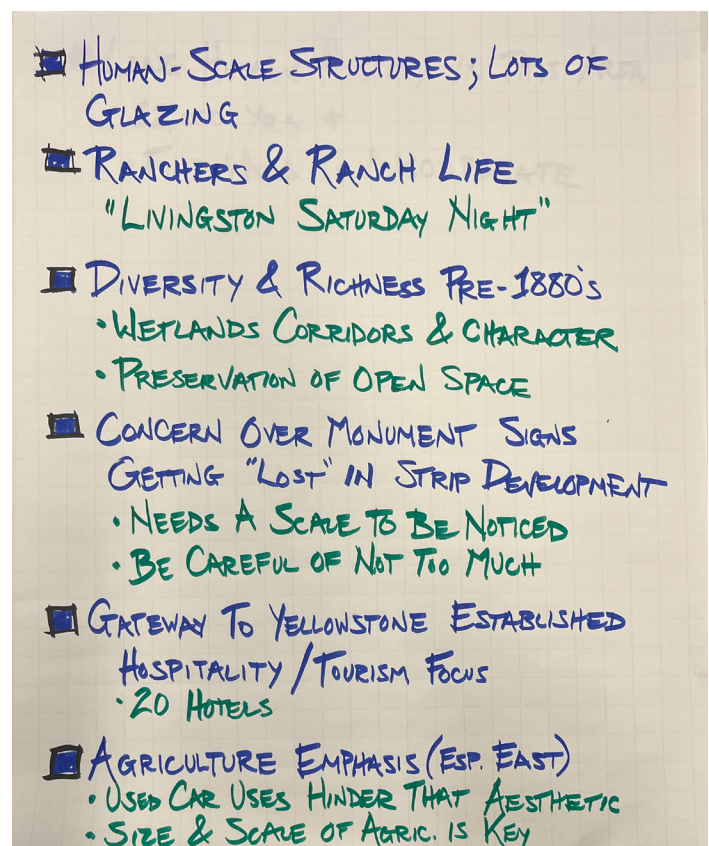 HUMAN-SCALE STRUCTURES; LOTS OF
GLAZING
RANCHERS & RANCH LIFE
"LIVINGSTON SATURDAY NIGHT"
DIVERSITY & RICHNESS PRE-1880'S
• WETLANDS CORRIDORS & CHARACTER
• PRESERVATION OF OPEN SPACE
CONCERN OVER MONUMENT SIGNS
GETTING "LOST" IN STRIP DEVELOPMENT
• NEEDS A SCALE TO BE NOTICED
• BE CAREFUL OF NOT TOO MUCH
GATEWAY TO YELLOWSTONE ESTABLISHED
HOSPITALITY/TOURISM FOCUS
• 20 HOTELS
AGRICULTURE EMPHASIS (ESP. EAST)
• USED CAR USES HINDER THAT AESTHETIC
• SIZE & SCALE OF AGRIC. IS KEY